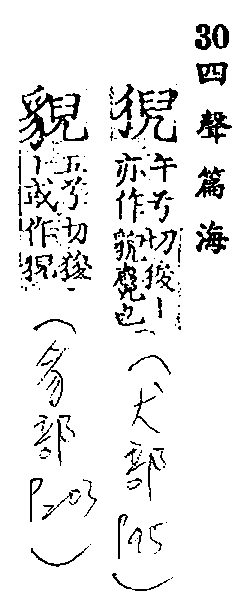 30 四聲篇海
猊
午兮切狻丨
亦作貎麑也
(犬部 P.95)
貌
五兮切狻
丨或作猊
(豸部 P.203)